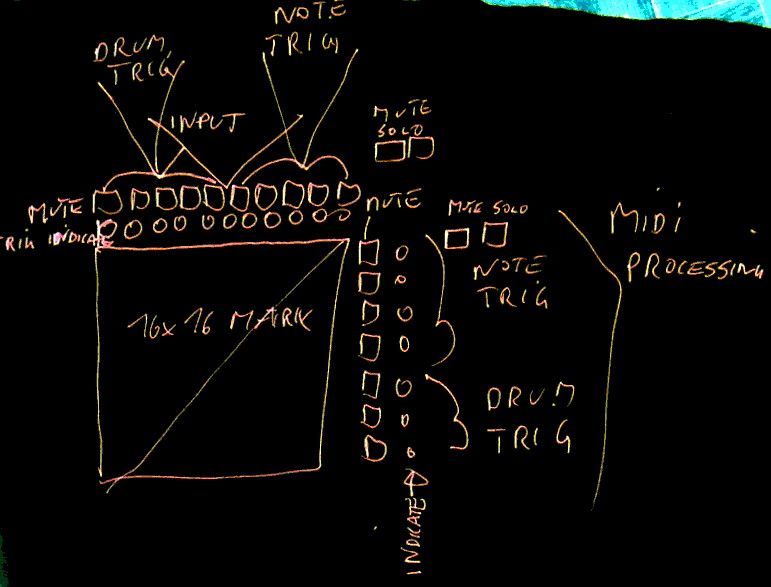 NOTE
TRIG
DRUM
TRIG
INPUT
MUTE
SOLO
MUTE
TRIG INDICATE
MUTE
MUTE SOLO
NOTE
TRIG
MIDI
PROCESSING
16x16 MATRIX
DRUM
TRIG
INDICATE